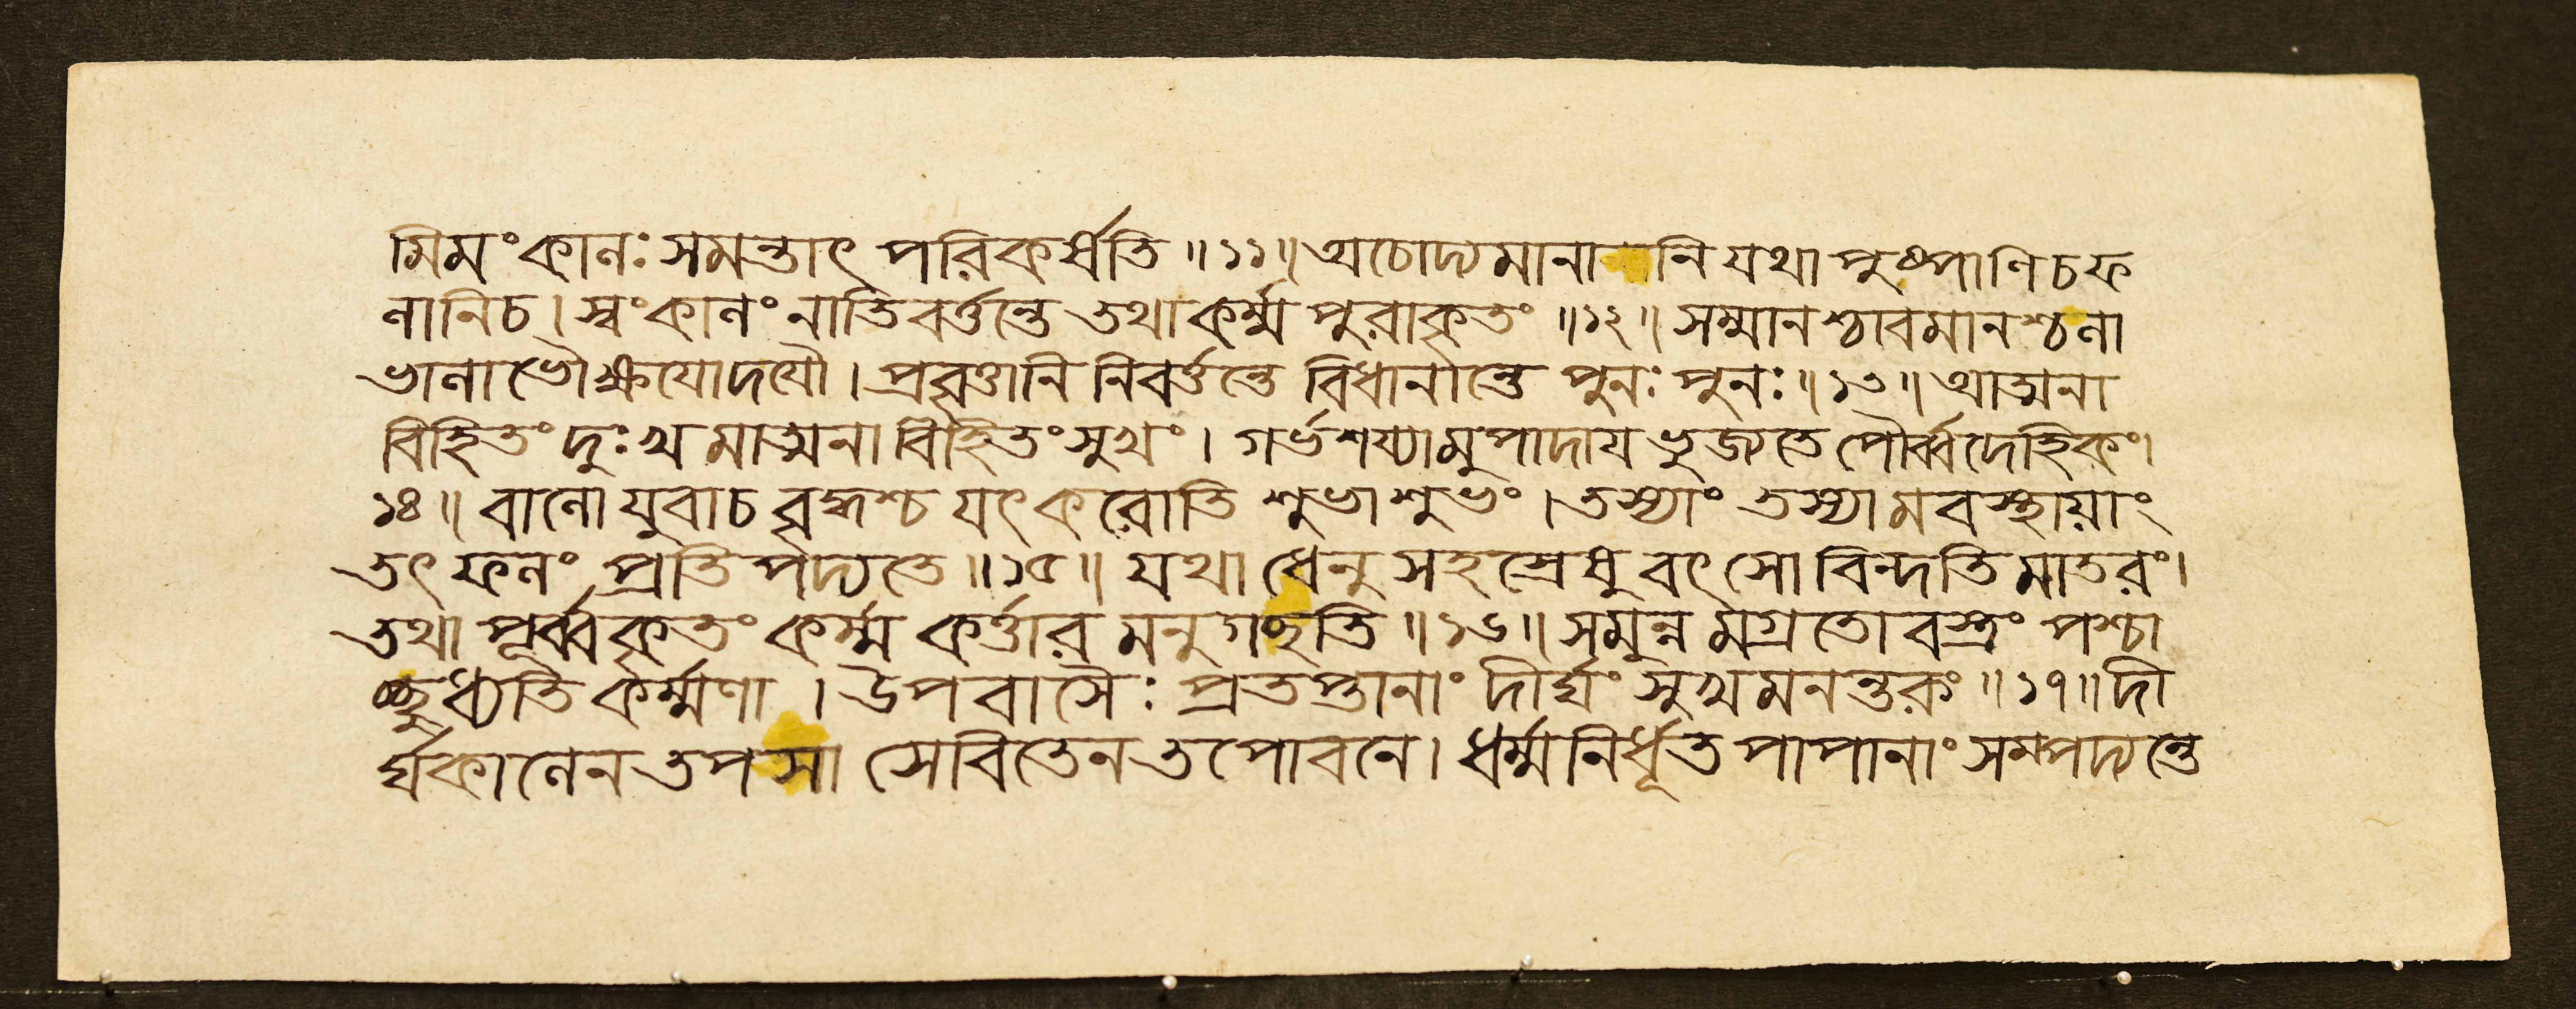 মিমং কালঃ সমন্তাৎ পরিকর্ষতি ॥ ১১ ॥ অচোদ্যমানা নি যথা পুষ্পাণি চ ফ
লানি চ । স্বং কালং নাতিবর্ত্তন্তে তথা কর্ম্ম পুরাকৃতং ॥ ১২ ॥ সম্মানশ্চাবমানশ্চ লা
ভালাভৌ ক্ষয়োদয়ৌ । প্রবৃত্তানি নিবর্ত্তন্তে বিধানান্তে পুনঃ পুনঃ ॥ ১৩ ॥ আত্মনা
বিহিতং দুঃখমাত্মনা বিহিতং সুখং । গর্ভশয্যামুপাদায় ভুজ্যতে পৌর্ব্বদেহিকং ।
১৪ ॥ বালো যুবা চ বৃদ্ধশ্চ যৎ করোতি শুভাশুভং । তস্যাং তস্যামবস্থায়াং
তৎ ফলং প্রতিপদ্যতে ॥ ১৫ ॥ যথা ধেনুসহস্রেষু বৎসো বিন্দতি মাতরং ।
তথা পূর্ব্বকৃতং কর্ম্ম কর্ত্তারমনুগচ্ছতি ॥ ১৬ ॥ সমুন্নমগ্রতো বস্ত্রং পশ্চা
চ্ছুধ্যতি কর্ম্মণা । উপবাসৈঃ প্রতপ্তানাং দীর্ঘং সুখমনন্তকং ॥ ১৭ ॥ দী
র্ঘকালেন তপসা সেবিতেন তপোবনে । ধর্ম্মনির্ধূতপাপানাং সম্পদ্যন্তে